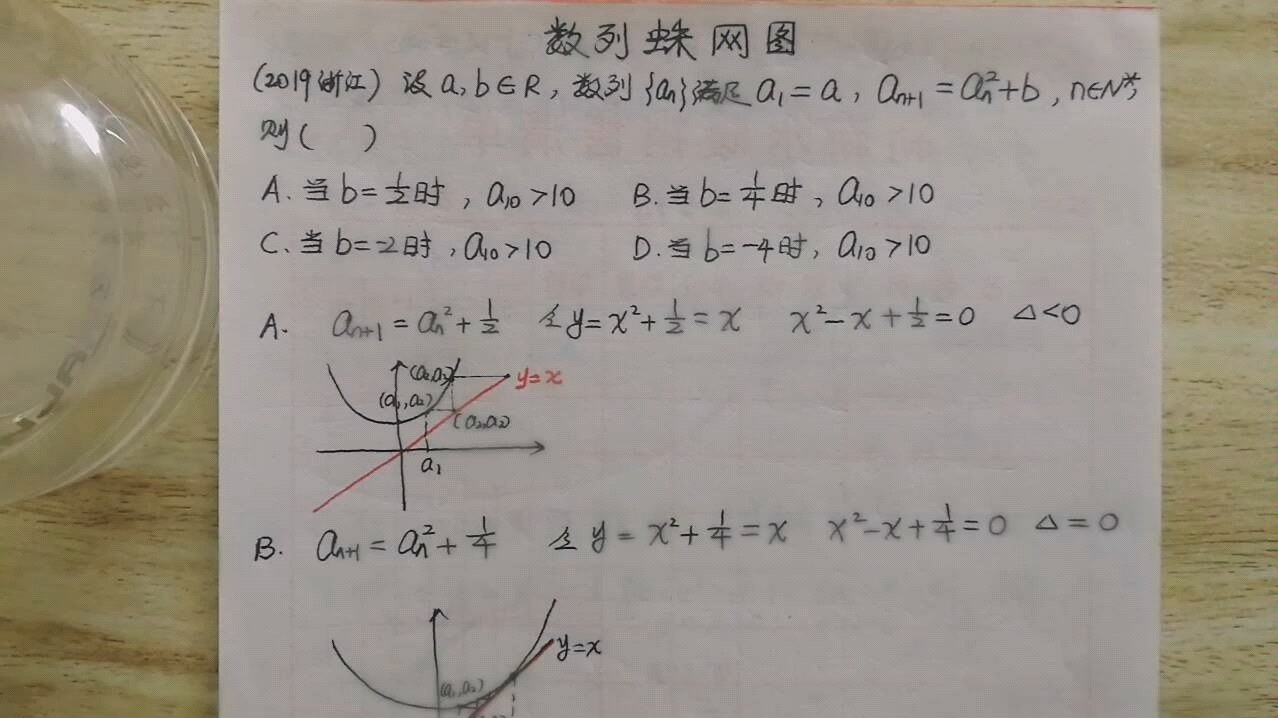 数列蛛网图
(2019浙江) 设a,b∈R, 数列{aₙ}满足a₁=a, aₙ₊₁=aₙ²+b, n∈N*,
则( )
A. 当b=1/2时, a₁₀>10 B. 当b=1/4时, a₁₀>10
C. 当b=-2时, a₁₀>10 D. 当b=-4时, a₁₀>10
A. aₙ₊₁=aₙ²+1/2 令y=x²+1/2=x x²-x+1/2=0 Δ<0
y=x
(a₁,a₂)
(a₂,a₂)
a₁
B. aₙ₊₁=aₙ²+1/4 令y=x²+1/4=x x²-x+1/4=0 Δ=0
y=x
(a₁,a₂)